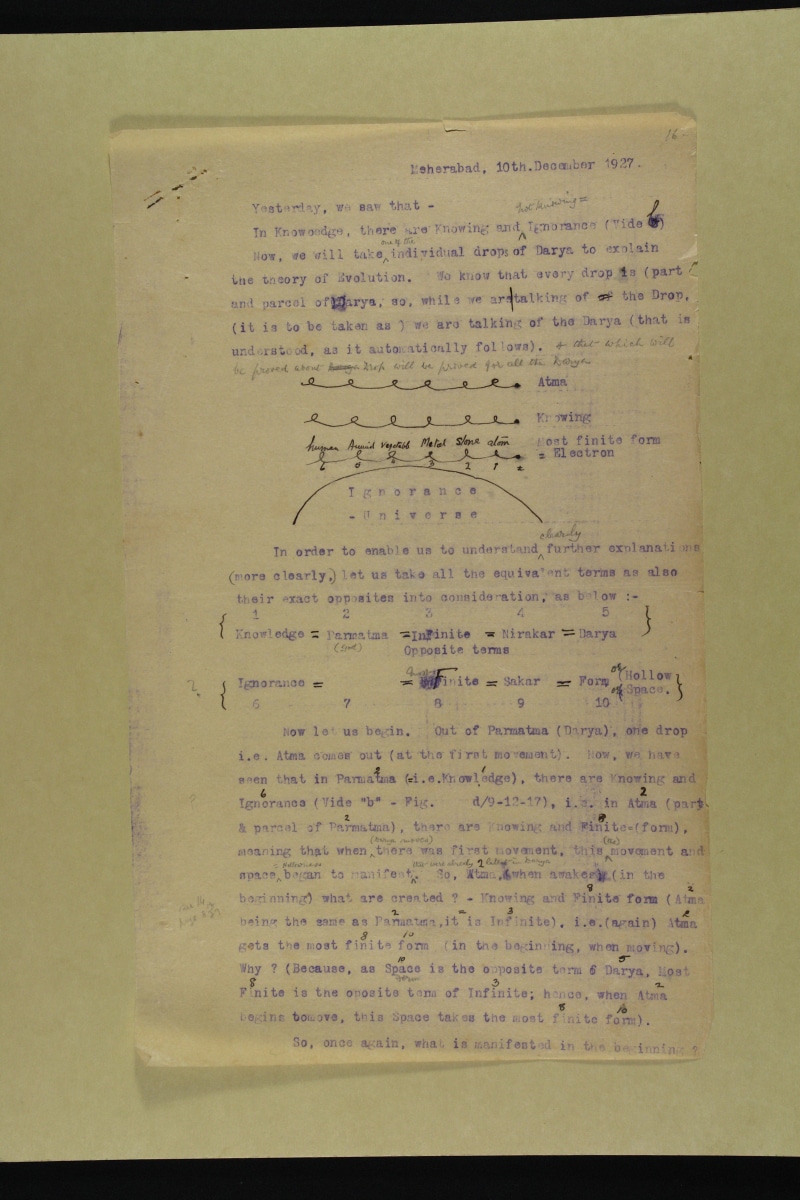 16
Meherabad, 10th.December 1927.
Yesterday, we saw that -
not knowing =
In Knoweedge, there are Knowing and Ignorance (Vide b)
one of the
Now, we will take individual drops of Darya to explain
the theory of Evolution. We know that every drop is (part
and parcel of Darya, so, while we are talking of the Drop,
(it is to be taken as ) we are talking of the Darya (that is
understood, as it automatically follows). & that which will
be proved about Drop will be proved for all the Darya
Atma
Knowing
human Animal vegetable Metal Stone atom Most finite form
6 5 4 3 2 1 = = Electron
Ignorance
-Universe
clearly
In order to enable us to understand further explanations
(more clearly,) let us take all the equivalent terms as also
their exact opposites into consideration, as below :-
1 2 3 4 5
{ Knowledge = Parmatma =Infinite = Nirakar = Darya }
(God) Opposite terms
? { Ignorance = = Finite = Sakar = Form or (Hollow
or (Space. }
6 7 8 9 10
Now let us begin. Out of Parmatma (Darya), one drop
i.e. Atma comes out (at the first movement). Now, we have
2 1
seen that in Parmatma (=i.e.Knowledge), there are Knowing and
6 2
Ignorance (Vide "b" - Fig. d/9-12-17), i.e. in Atma (part
2 8
& parcel of Parmatma), there are Knowing and Finite=(form),
meaning that when there was first movement, this movement and
space began to manifest. So, Atma, (when awakes) (in the
8 2
beginning) what are created ? - Knowing and Finite form (Atma
2 = 3 2
being the same as Parmatma,it is Infinite), i.e.(again) Atma
8 10
gets the most finite form (in the beginning, when moving).
10 5
Why ? (Because, as Space is the opposite term 6 Darya, Most
8 3 2
Finite is the oposite term of Infinite; hence, when Atma
8 10
begins tomove, this Space takes the most finite form).
So, once again, what is manifested in the beginning ?